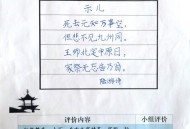 示儿
死去元知万事空，
但悲不见九州同。
王师北定中原日，
家祭无忘告乃翁。
陆游诗
评价内容 小组评价